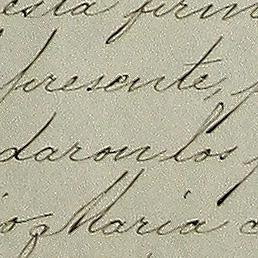 esta firm
presente, p
daron los p
io Maria c